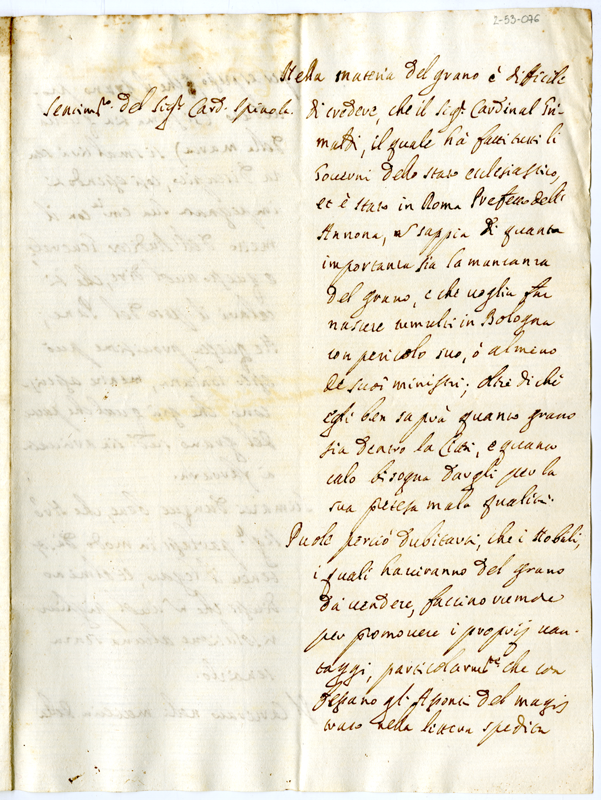 2-53-076
Nella materia del grano è difficile
Sentim.to del Sig.r Card. Spinola.
di credere, che il Sig.r Cardinal Gri-
maldi, il quale hà fatti tutti li
Governi dello stato ecclesiastico,
et è stato in Roma Prefetto dell'
Annona, sappia di quanta
importanza sia la mancanza
del grano, e che voglia far
nascere tumulti in Bologna
con pericolo suo, ò almeno
de suoi ministri; oltre di chè
egli ben saprà quanto grano
sia dentro la Città, e quanto
calo bisogna dargli per la
sua pretesa mala qualità.
Puole perciò dubitarsi, che i Nobili,
i quali haveranno del grano
da vendere, faccino
per promovere i proprij van-
taggi, particolarm.te che con
gli Aponti del magis
trato nella lettera spedita